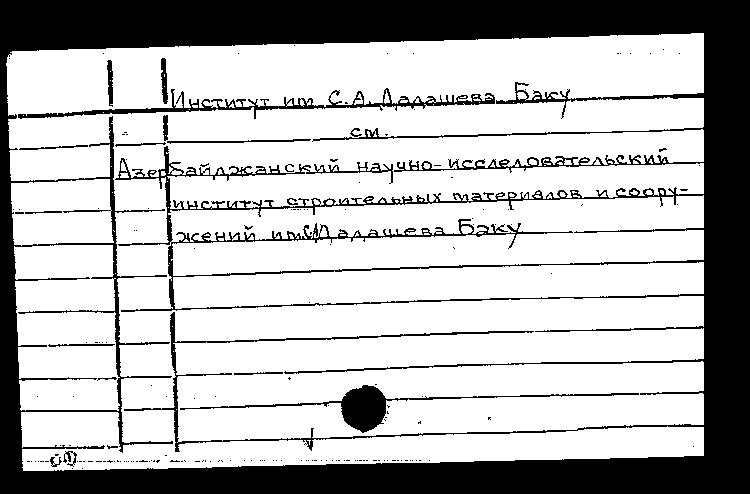 Институт им. С.А. Дадашева. Баку
см.
Азербайджанский научно-исследовательский
институт строительных материалов и соору-
жений им С.А Дадашева Баку